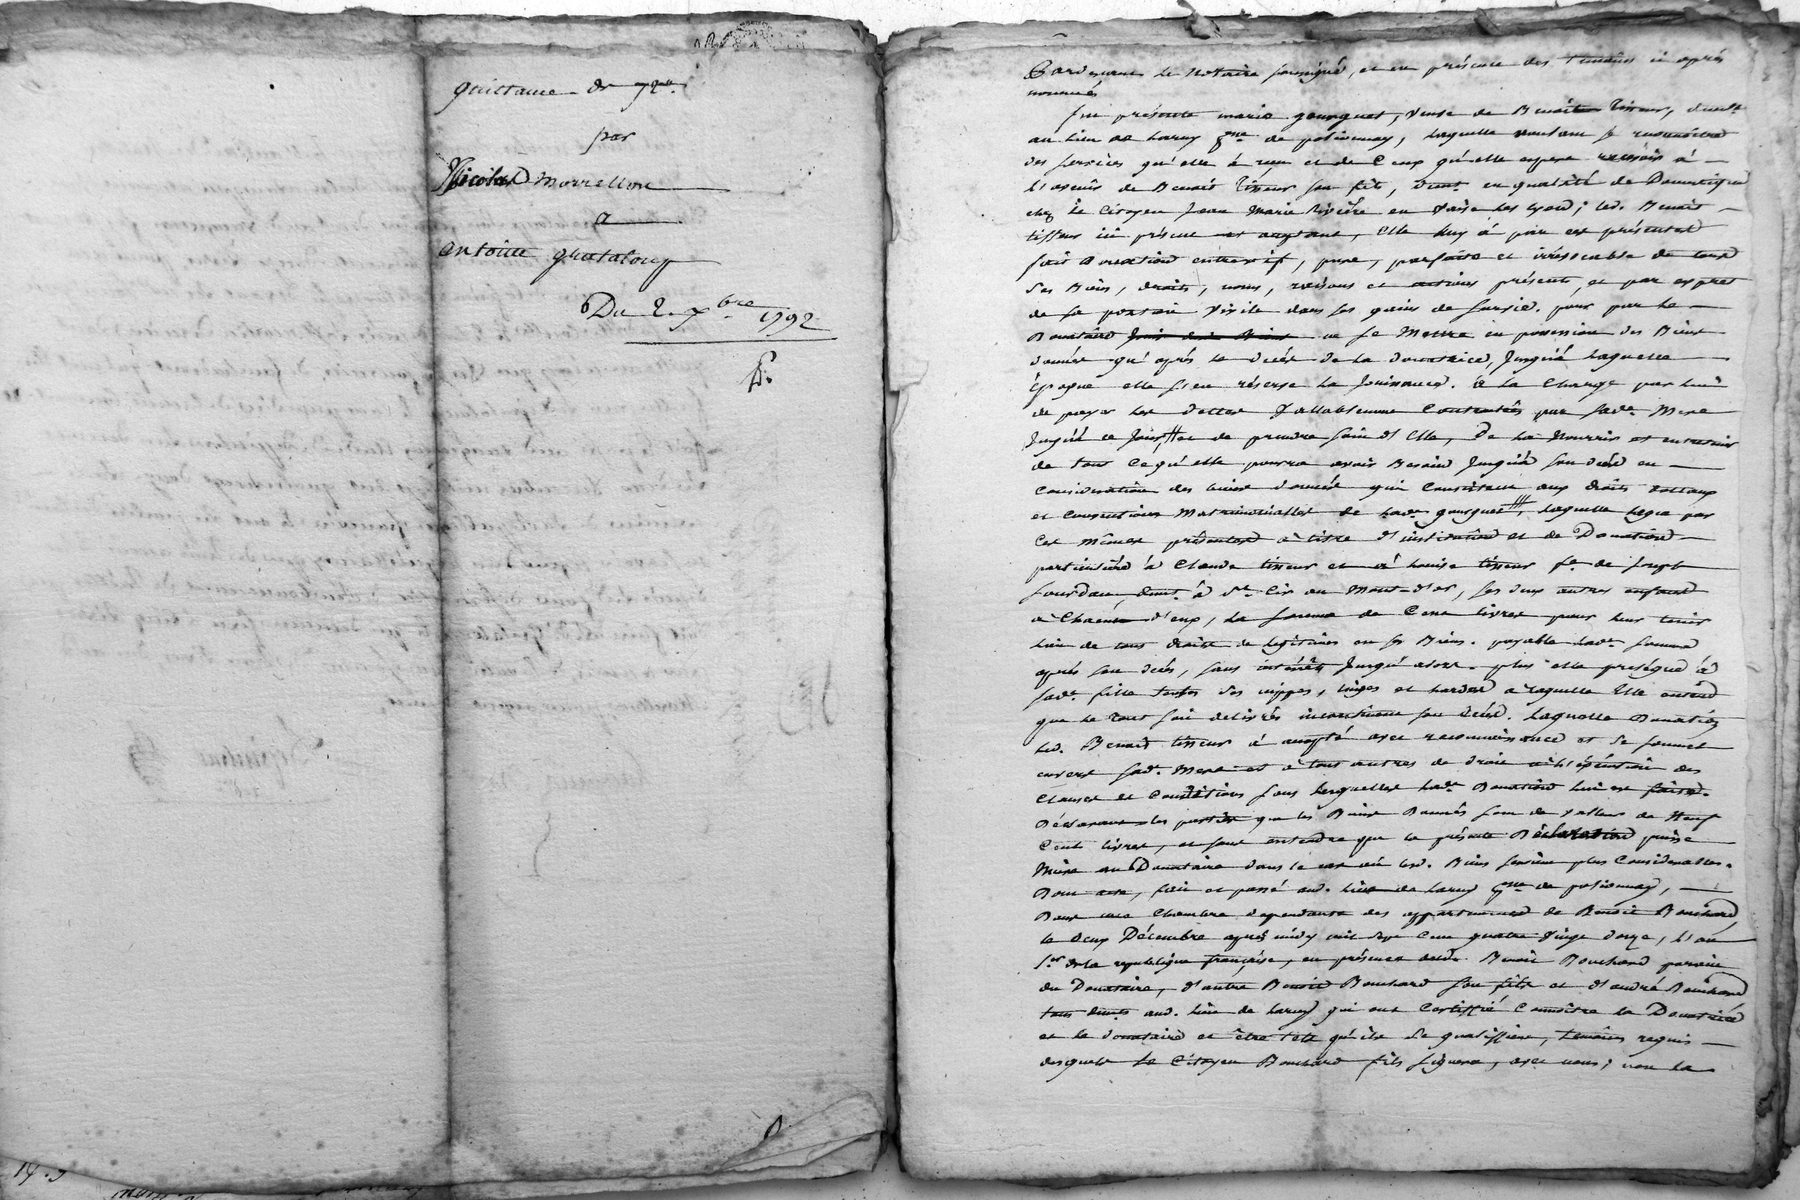 quittance de 72ll
par
Nicolas Morrellon
a
antoine gastaloup
Du 2. Xbre 1792
Pardevant le Notaire soussigné, et en présence des témoins ci après
nommés
fut présente marie gourguet, veuve de Benoit tisseur, demte
au lieu de Larny psse de polionnay, laquelle voulant se reconnoitre
des services qu'elle à reçu et de Ceux qu'elle espere recevoir à
L'avenir de Benoit tisseur son fils, demt en qualité de Domestique
chez le Citoyen Jean Marie Rivière en Vaise Les Lyon; led. Benoit
tisseur ici présent et acceptant, elle luy á par ces présentes
fait Donation entrevif, pure, parfaite et irrévocable de tous
ses Biens, droits, noms, raisons et actions présents, et par exprès
de sa portion virile dans les gains de survie. pour par le
Donataire ne se Mettre en possession des Biens
donnés qu'après le décès de la donatrice, Jusqu'à laquelle
époque elle s'en réserve la Jouissance. à la Charge par lui
de payer les dettes Valablement Contractées par sade Mere
Jusqu'à ce Jour, et de prendre soin d'Elle, De la Nourrir et entretenir
de tout ce qu'elle pourra avoir Besoin Jusqu'à son décès en
Considération des biens donnés qui Consistent aux droits dottaux
et Conventions Matrimonialles de lade gourguet, laquelle legue par
Ces Mêmes présentes à titre d'institution et de Donation
particulière à Claude tisseur et à Louise tisseur fe de Joseph
Jourdan, demt à St. Cir au Mont-d'or, ses deux autres enfans
à Chacun d'eux, la somme de Cent livres pour leur tenir
lieu de tous droits de légitimes en ses Biens. payable lade somme
après son décès, sans intérêts Jusqu'alors. plus elle prélégue à
sade fille toutes ses nippes, linges et hardes à laquelle Elle entend
que le tout soit délivrés incontinent son décès. Laquelle Donation
led. Benoit tisseur à accepté avec reconnoissance et se soumet
envers sade Mere et à tous autres de droit à l'exécution des
Clauses et Conditions sous lesquelles lade Donation lui est faite.
Déclarant les parties que les Biens Donnés sont de valleur de Neuf
Cent livres, et sans entendre que la présente Déclaration puisse
Nuire au Donataire dans le cas où lesd. Biens seroient plus Considérables.
Dont acte, fait et passé aud. lieu de Larny psse de polionnay,
Dans une Chambre dépendante des appartements de Benoit Bouchard,
le deux Décembre après midy mil sept Cent quatre vingt douze, l'an
1er de la république française, en présence dudt. Benoit Bouchard parain
du Donataire, d'autre Benoit Bouchard son fils et d'andré Bouchard
tous demts aud. lieu de Larny qui ont Certiffié Connoitre la Donatrice
et le donataire et être tels qu'ils se qualiffient, témoins requis
desquels le Citoyen Bouchard fils signera, avec nous; non la